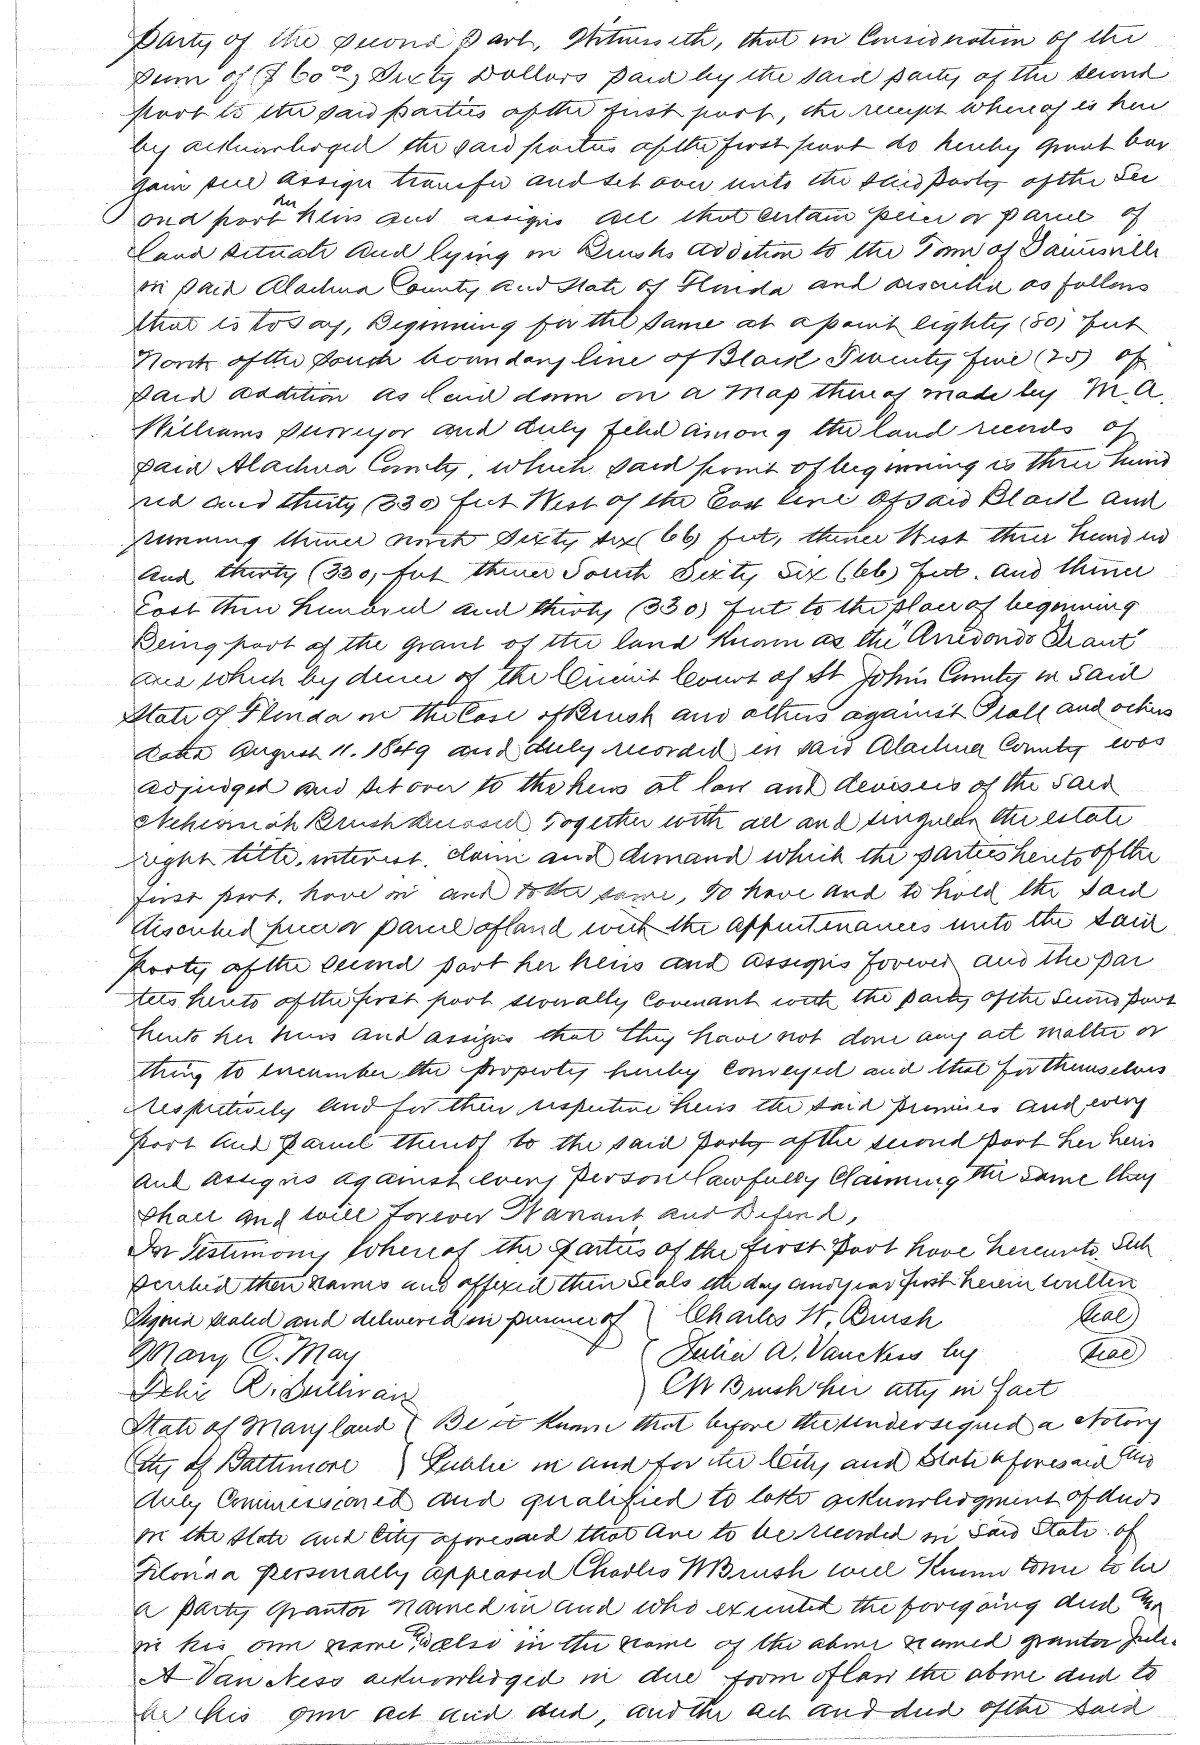 party of the second part, Witnesseth, that in Consideration of the
sum of ($60⁰⁰) Sixty Dollars paid by the said party of the second
part to the said parties of the first part, the receipt whereof is here
by acknowledged the said parties of the first part do hereby grant bar
gain sell assign transfer and set over unto the said party of the Sec
ond part her heirs and assigns all that certain piece or parcel of
land situate and lying in Brush's addition to the Town of Gainesville
in said Alachua County and State of Florida and described as follows
that is to say, Beginning for the same at a point eighty (80) feet
North of the South boundary line of Block Twenty five (25) of
said addition as laid down on a map thereof made by M.A.
Williams surveyor and duly filed among the land records of
said Alachua County, which said point of beginning is three hund
red and thirty (330) feet West of the East line of said Block and
running thence north Sixty six (66) feet, thence West three hundred
and thirty (330) feet thence South Sixty Six (66) feet. and thence
East three hundred and thirty (330) feet to the place of beginning
Being part of the grant of the land known as the "Arredondo Grant"
and which by decree of the Circuit Court of St John's County in said
State of Florida in the Case of Brush and others against Prall and others
dated August 11. 1849 and duly recorded in said Alachua County was
adjudged and set over to the heirs at law and devisees of the said
Nehemiah Brush deceased Together with all and singular the estate
right title, interest, claim and demand which the parties hereto of the
first part, have in and to the same, To have and to hold the said
discribed piece or parcel of land with the appurtenances unto the said
party of the second part her heirs and assigns forever and the par
ties hereto of the first part severally covenant with the party of the second part
hereto her heirs and assigns that they have not done any act matter or
thing to encumber the property hereby conveyed and that for themselves
respectively and for their respective heirs the said premises and every
part and parcel thereof to the said party of the second part her heirs
and assigns against every person lawfully claiming the same they
shall and will forever Warrant and Defend,
In Testimony Whereof the parties of the first part have hereunto sub
scribed their names and affixed their seals the day and year first herein written
Signed sealed and delivered in presence of Charles W. Brush (seal)
Mary C. May Julia A. VanNess by (seal)
R. Sullivan CW Brush her atty in fact
State of Maryland Be it Known that before the undersigned a Notary
City of Baltimore Public in and for the City and State aforesaid and
duly Commissioned and qualified to take acknowledgment of deeds
in the State and City aforesaid that are to be recorded in said State of
Florida personally appeared Charles W Brush well Known to me to be
a party grantor named in and who executed the foregoing deed and
in his own name and also in the name of the above named grantor Julia
A Van Ness acknowledged in due form of law the above deed to
be his own act and deed, and the act and deed of the said